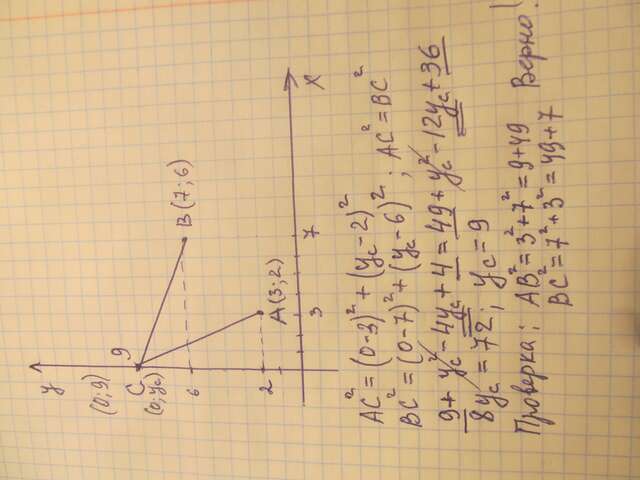 y
(0; 9)
C 9
(0; y_c)
B (7; 6)
6
2
A (3; 2)
3
7
X
AC² = (0-3)² + (y_c - 2)²
BC² = (0-7)² + (y_c - 6)² ; AC² = BC²
9 + y_c² - 4y_c + 4 = 49 + y_c² - 12y_c + 36
8y_c = 72 ; y_c = 9
Проверка: AB² = 3² + 7² = 9 + 49
BC² = 7² + 3² = 49 + 7 Верно!